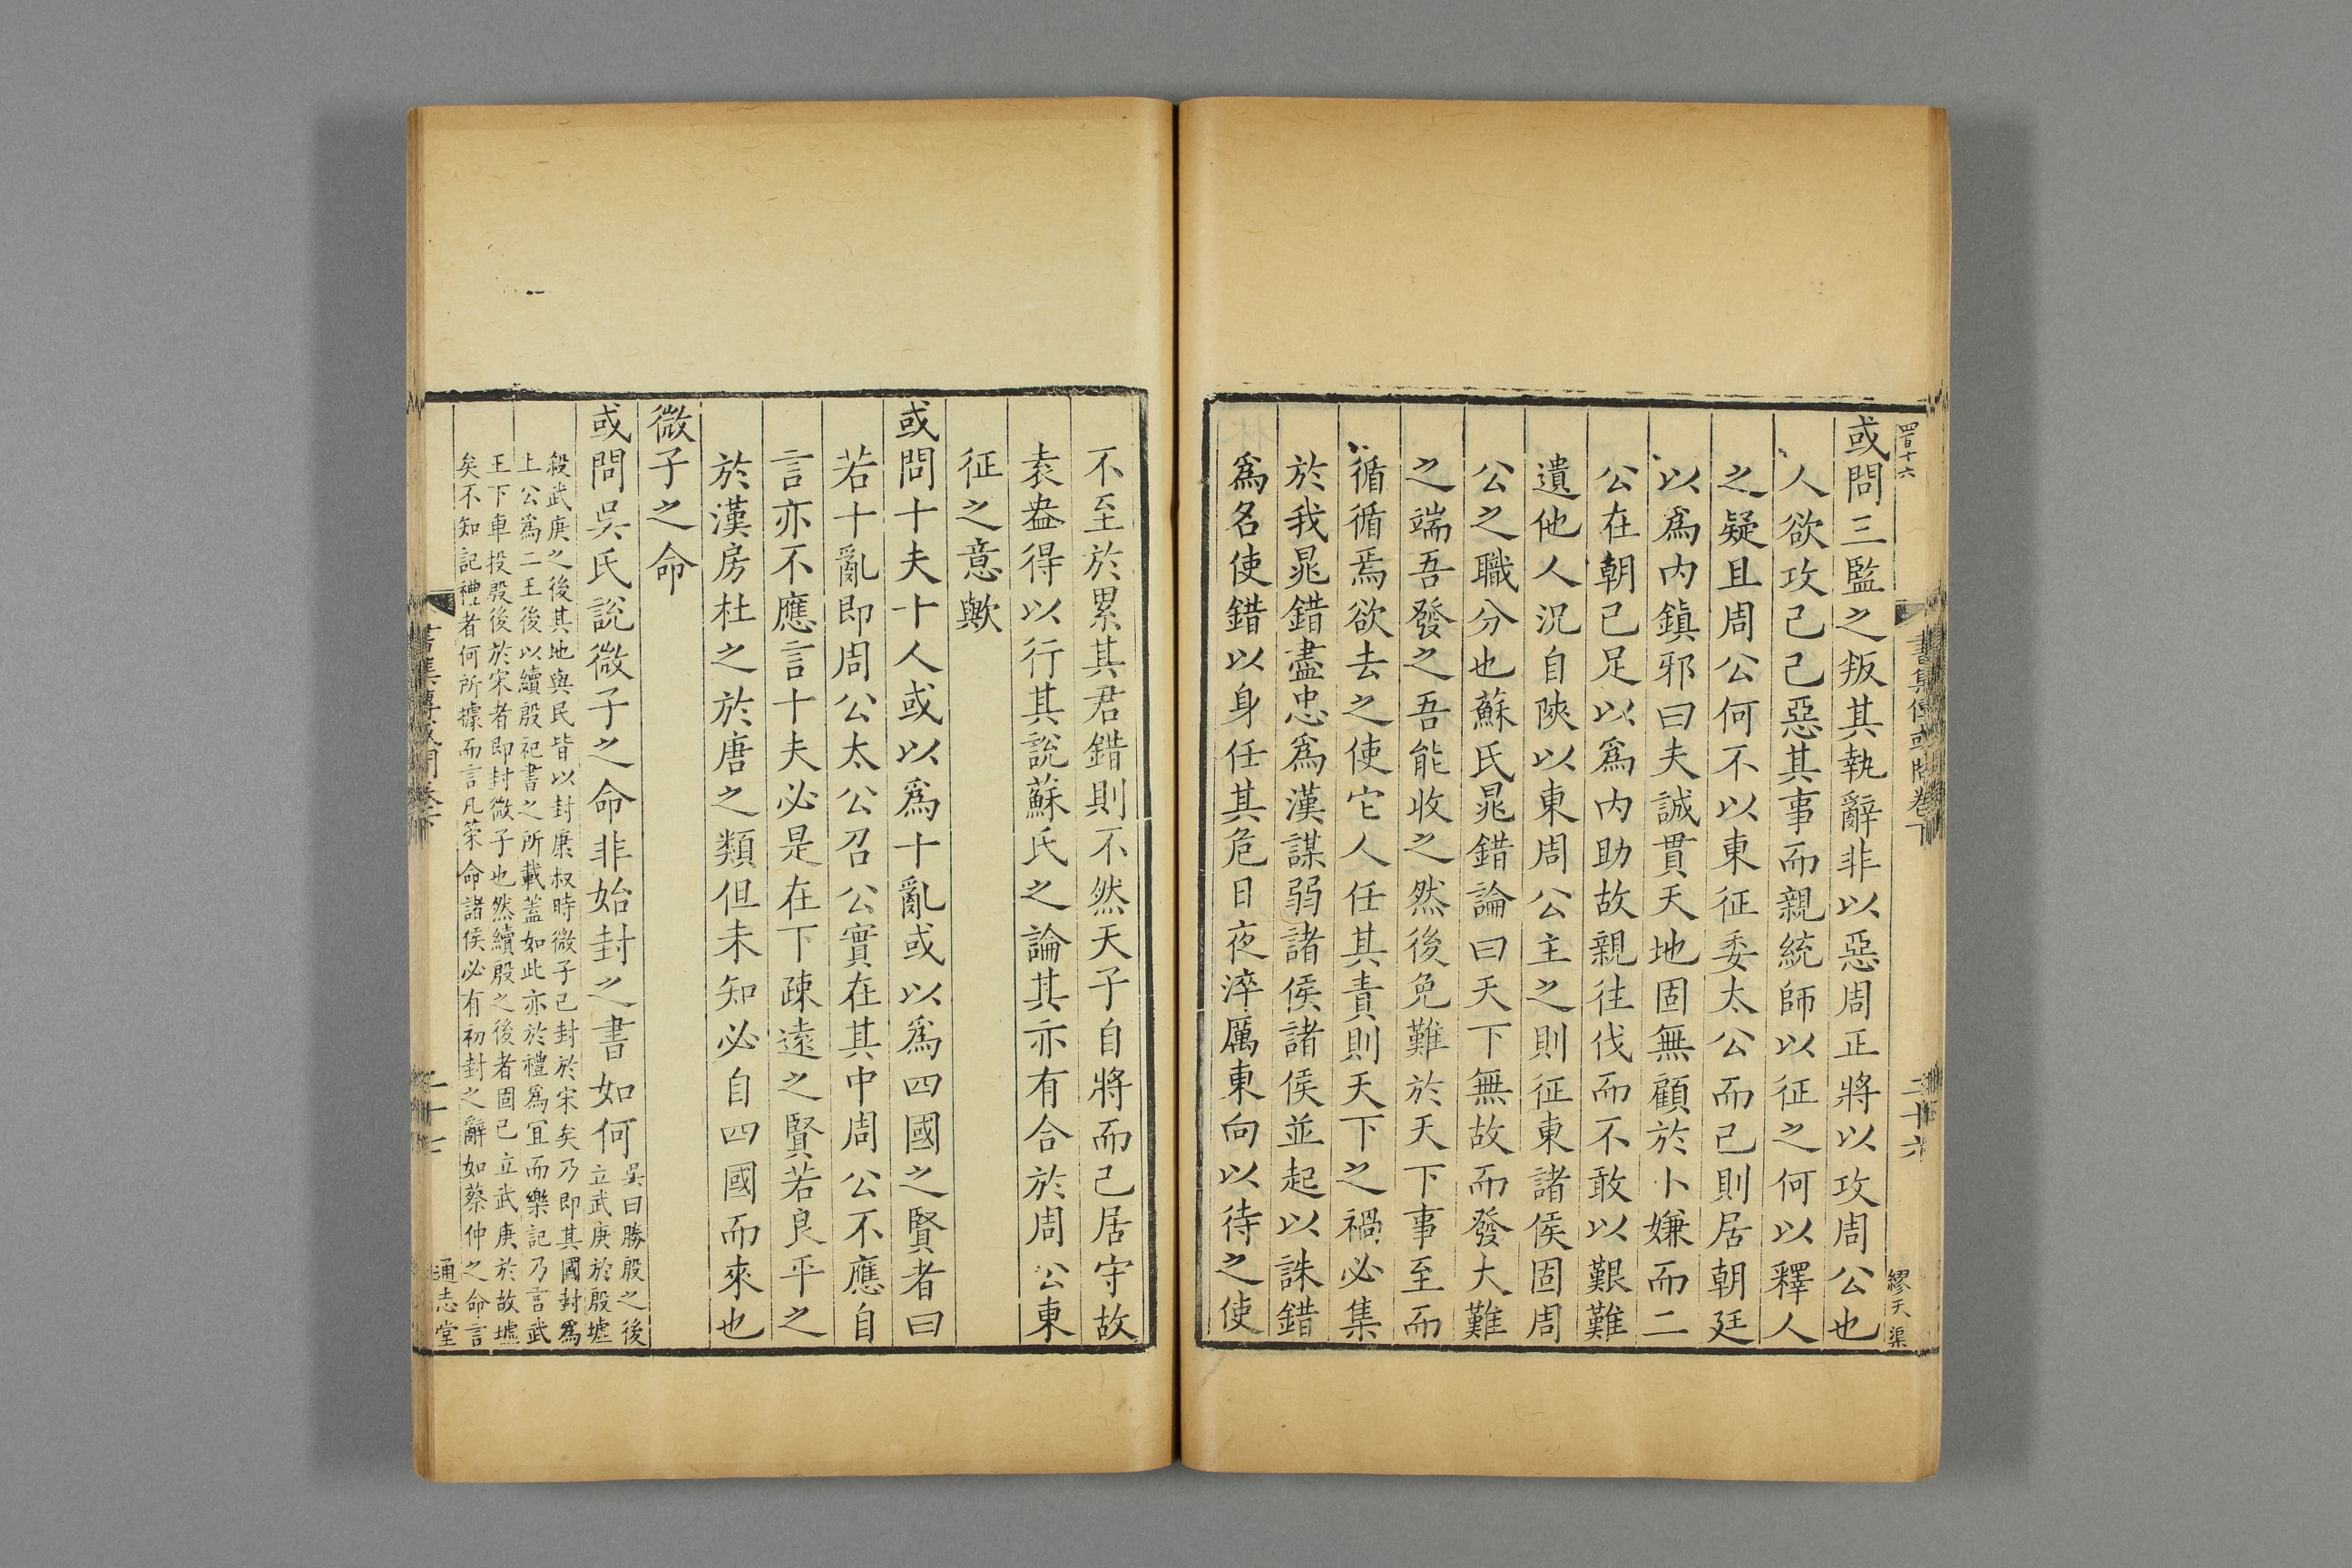 四百十六
書集傳或問卷下
二十六
繆天渠
或問三監之叛其執辭非以惡周正將以攻周公也
人欲攻己己惡其事而親統師以征之何以釋人
之疑且周公何不以東征委太公而己則居朝廷
以爲内鎮邪曰夫誠貫天地固無顧於卜嫌而二
公在朝已足以爲内助故親往伐而不敢以艱難
遺他人況自陝以東周公主之則征東諸侯固周
公之職分也蘇氏晁錯論曰天下無故而發大難
之端吾發之吾能收之然後免難於天下事至而
循循焉欲去之使它人任其責則天下之禍必集
於我晁錯盡忠爲漢謀弱諸侯諸侯並起以誅錯
爲名使錯以身任其危日夜淬厲東向以待之使
不至於累其君錯則不然天子自將而己居守故
袁盎得以行其說蘇氏之論其亦有合於周公東
征之意歟
或問十夫十人或以爲十亂或以爲四國之賢者曰
若十亂即周公太公召公實在其中周公不應自
言亦不應言十夫必是在下疎遠之賢若良平之
於漢房杜之於唐之類但未知必自四國而來也
微子之命
或問吳氏說微子之命非始封之書如何
吳曰勝殷之後
立武庚於殷墟
殺武庚之後其地與民皆以封康叔時微子已封於宋矣乃即其國封爲
上公爲二王後以續殷祀書之所載蓋如此亦於禮爲宜而樂記乃言武
王下車投殷後於宋者即封微子也然續殷之後者固已立武庚於故墟
矣不知記禮者何所據而言凡策命諸侯必有初封之辭如蔡仲之命言
書集傳或問卷下
二十七
通志堂